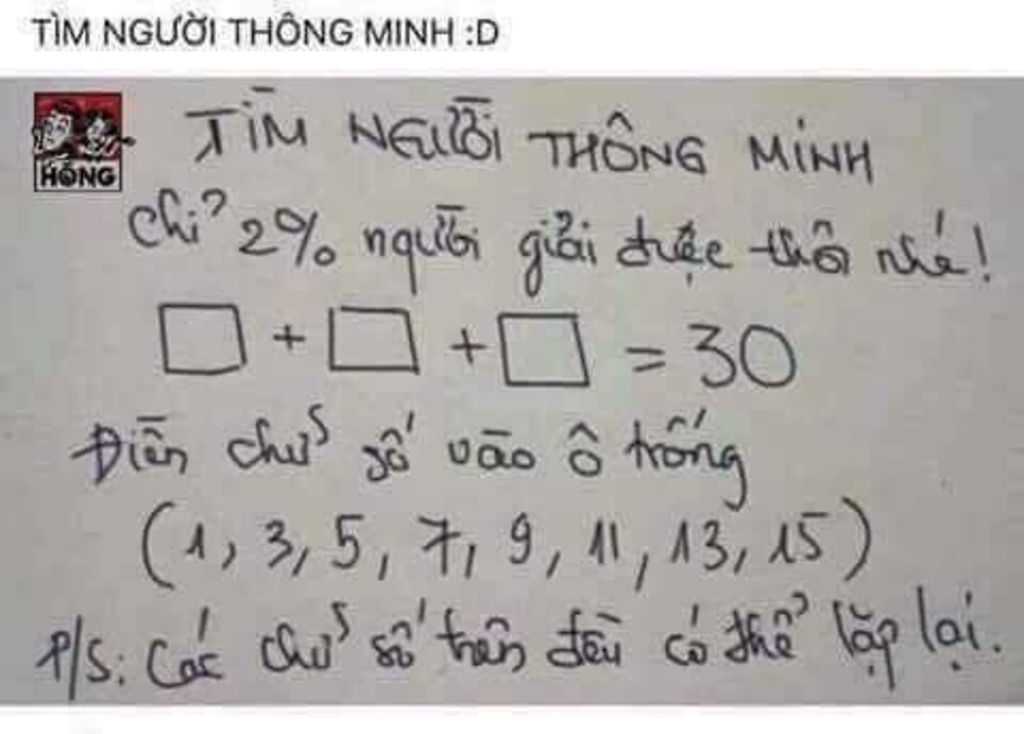 TÌM NGƯỜI THÔNG MINH :D
HÓNG
TÌM NGƯỜI THÔNG MINH
Chỉ 2% người giải được thôi nhé!
□ + □ + □ = 30
Điền chữ số vào ô trống
(1, 3, 5, 7, 9, 11, 13, 15)
P/S: Các chữ số trên đều có thể lặp lại.